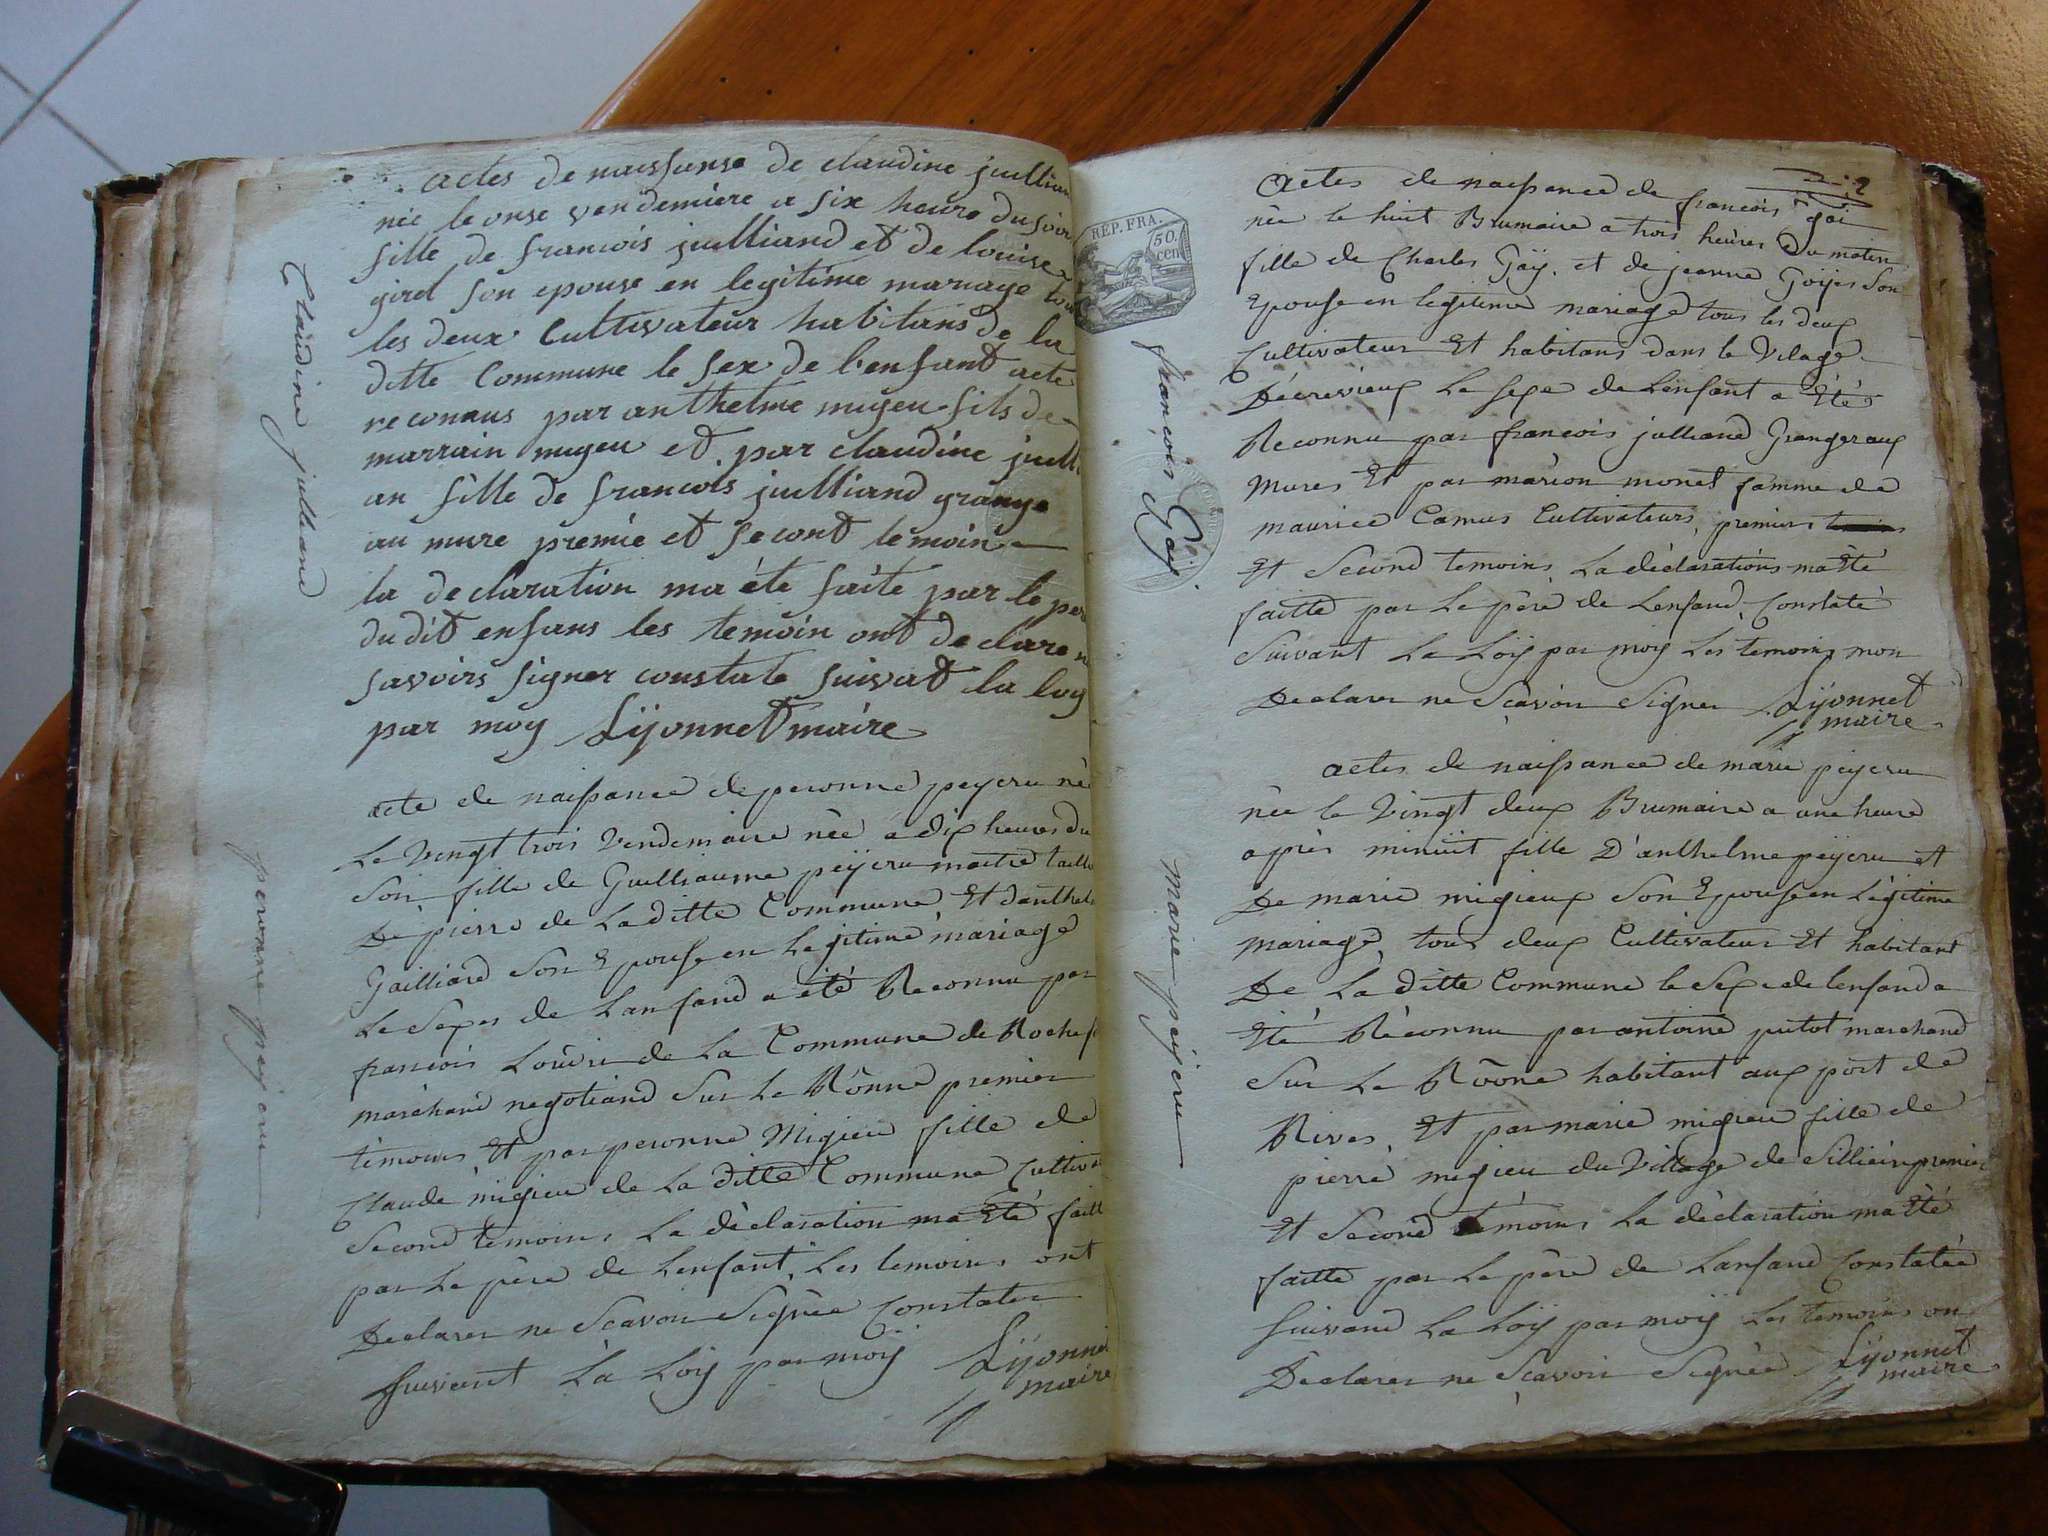 actes de naissense de claudine juillian
née le onse vendemiere a six heure du soir
fille de francois juilliand et de louise
girel son epouse en legitime mariage tous
les deux Cultivateur habitans de la
ditte Commune le sex de l'enfant aete
reconnus par anthelme mugeu fils de
marrain mugeu et par claudine juilli
an fille de francois juilliand grange
au mure premié et second temoin
la declaration ma éte faite par le per
du dit enfans les temoin ont declare n
savoirs signer constate suivat la loy
par moy Lÿonnet maire
Claudine juilliand
acte de naissance de peronne peyeru née
Le vingt trois vendemiaire née a dix heures du
Soir fille de Guilliaume peÿcru maitre taill
De pierre de La ditte Commune Et danthel
Gailliard Son Epouse en Legitime mariage
Le Sexes de Lanfand a été Reconnu par
francois Louvre de La Commune de Rochef
marchand negotiand Sur Le Rônne premier
témoins Et par peronne Migieu fille de
Claude migieu de La ditte Commune Cultiv
Second temoins La déclaration ma Eté faitt
par Le père de Lenfant Les temoins ont
Declarer ne Scavoir Signée Constater
Suivant La Loÿ par moÿ Lÿonnet
maire
peronne peycru
2
REP. FRA.
50.
cen
Actes de naissance de francois gai
née le huit Brumaire a trois heures Du maten
fille de Charles Gaÿ et de jeanne Goÿes Son
Epouse en legitime mariage tous les deux
Cultivateur Et habitans dans le Vilage
Décrivieux Le sexe de Lenfant a Eté
Reconnu par francois julliand Granger aux
Mures Et par marion monet famme de
maurice Camus Cultivateurs premiers
Et Second temoins La déclarations ma Eté
faitte par Le père de Lenfand Constaté
Suivant La Loÿ par moÿ Les temoins mon
Declarer ne Scavoir Signer Lÿonnet
maire
françois Gaÿ
actes de naissance de marie peÿcru
née le Vingt deux Brumaire a une heure
après minuit fille D'anthelme peÿcru et
De marie migieux Son Epouse en Légitime
mariage tous deux Cultivateur Et habitant
De La ditte Commune le Sexe de lenfand a
Eté Réconnu par antoine putot marchand
Sur Le Rône habitant aux port de
Rives Et par marie migieu fille de
pierre migieu du Village de Sillieu premier
Et Second témoins La déclaration ma Eté
faitte par Le père de Lanfand Constatée
Suivand La Loÿ par moÿ Les temoins on
Déclarer ne Scavoir Signée Lÿonnet
maire
marie peÿcru